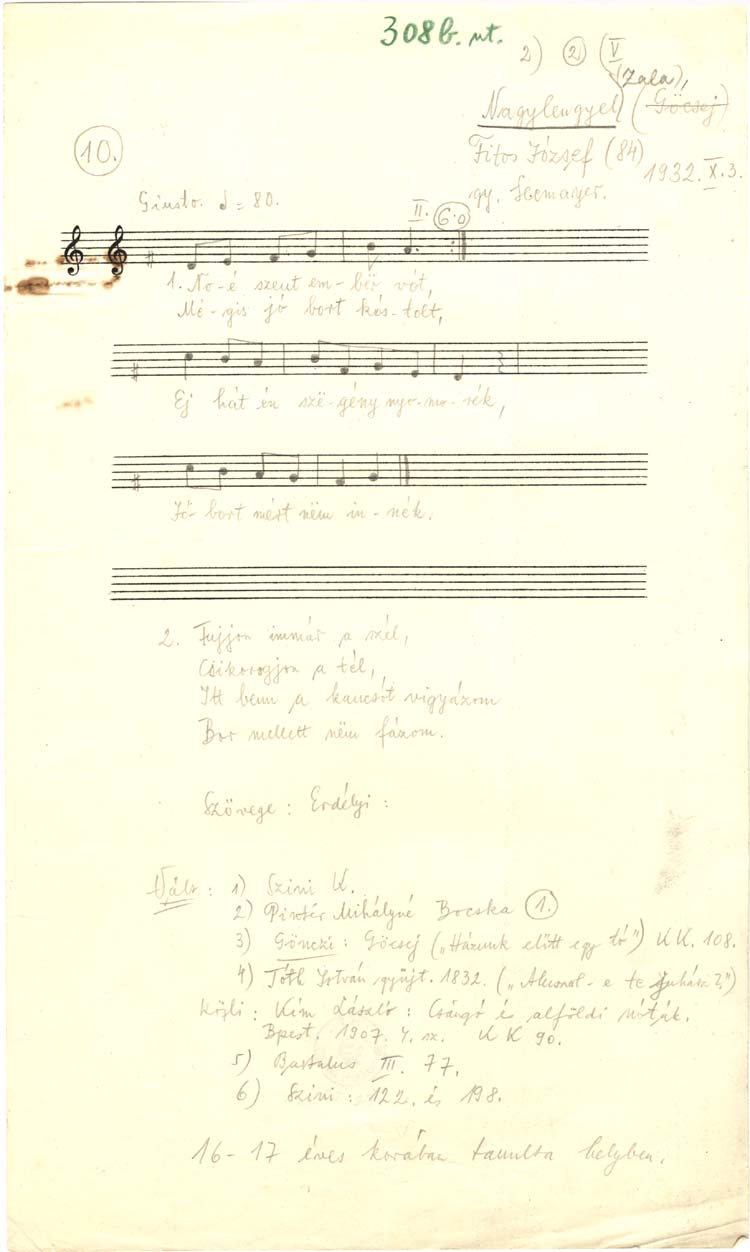 308b. nt.
2) 2 (V
(Zala),
Nagylengyel (Göcsej)
10.
Fitos József (84)
1932. X. 3.
gy. Seemayer.
Giusto. = 80.
II. 6.0
1. No-é szent em-bër vót,
Mé-gis jó bort kós-tolt,
Ej hát én szë-gény nyo-mo-rék,
Jó bort mért nëm in-nék.
2. Fujjon immár a szél,
Csikorogjon a tél,
Itt benn a kancsót vigyázom
Bor mellett nëm fázom.
Szövege: Erdélyi:
Vált: 1) Szini K.
2) Pintér Mihályné Bocska 1.
3) Gönczi: Göcsej („Házunk előtt egy tó") KK. 108.
4) Tóth István gyüjt. 1832. („Aluszol-e te juhász?")
közli: Kún László: Csángó és alföldi nóták.
Bpest. 1907. 4. sz. KK 90.
5) Bartalus III. 77.
6) Szini: 122. és 198.
16-17 éves korában tanulta helyben.